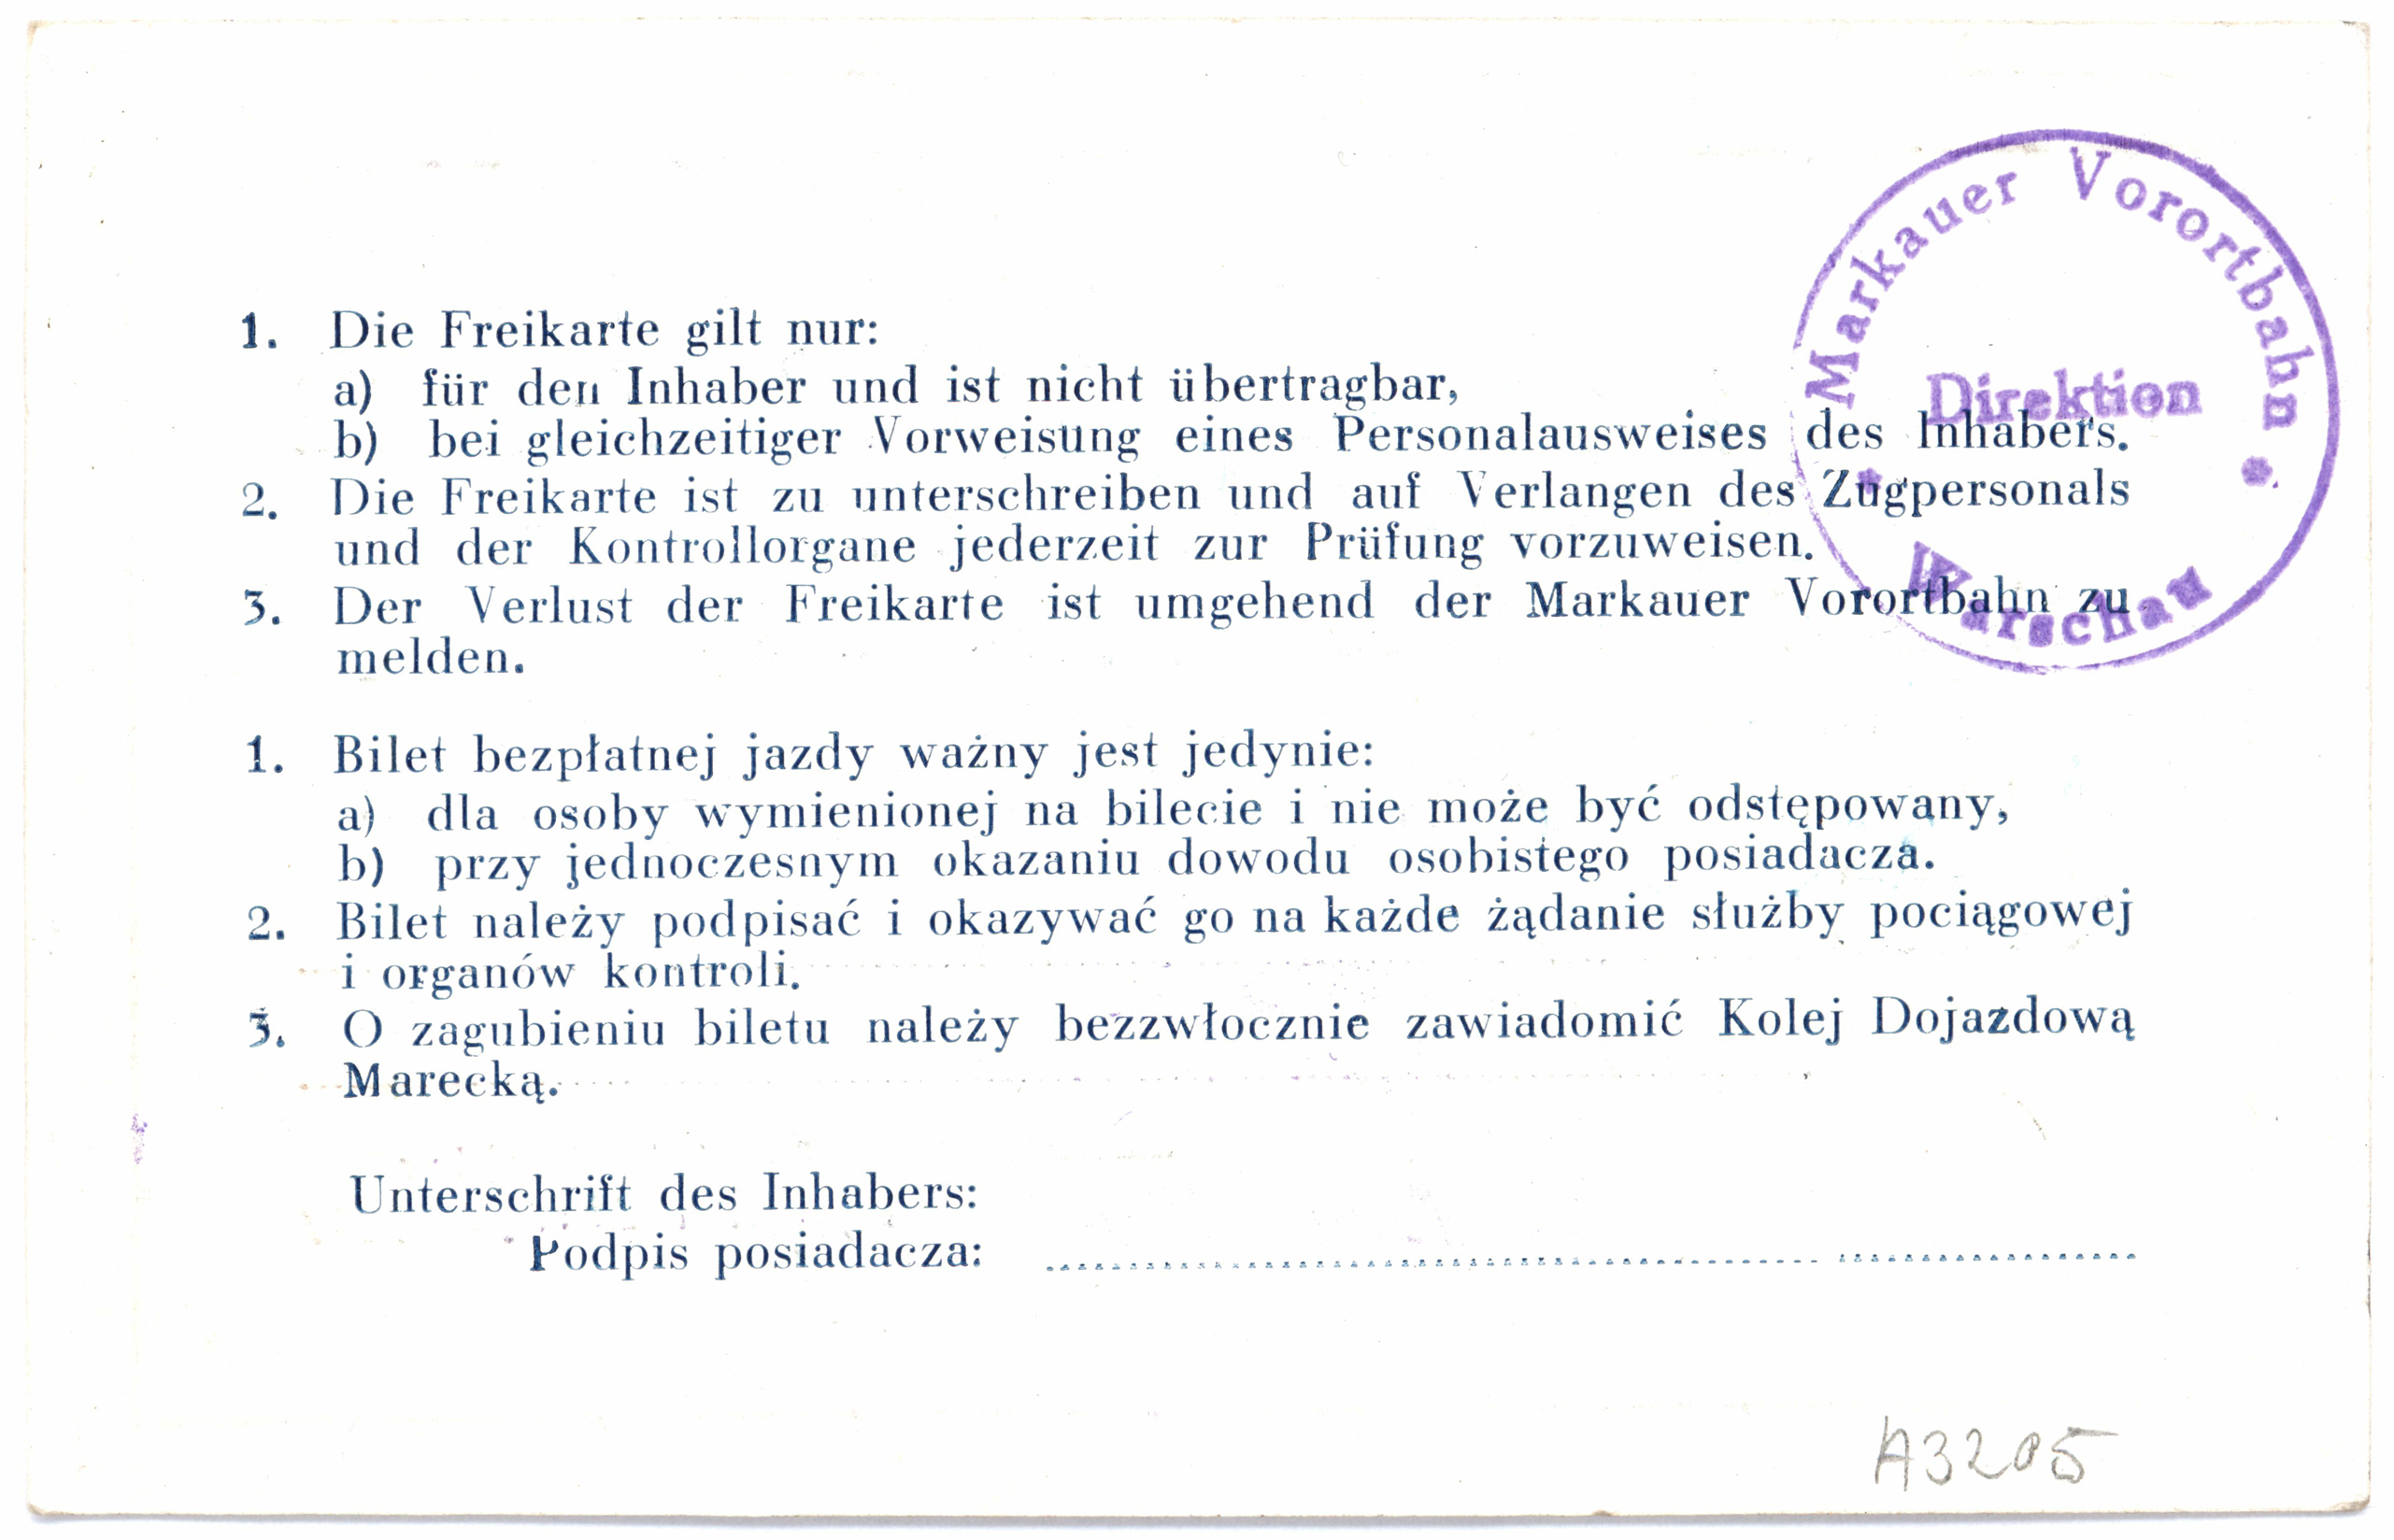 Markauer Vorortbahn
Direktion
Warschau
1. Die Freikarte gilt nur:
a) für den Inhaber und ist nicht übertragbar,
b) bei gleichzeitiger Vorweisung eines Personalausweises des Inhabers.
2. Die Freikarte ist zu unterschreiben und auf Verlangen des Zugpersonals
und der Kontrollorgane jederzeit zur Prüfung vorzuweisen.
3. Der Verlust der Freikarte ist umgehend der Markauer Vorortbahn zu
melden.
1. Bilet bezpłatnej jazdy ważny jest jedynie:
a) dla osoby wymienionej na bilecie i nie może być odstępowany,
b) przy jednoczesnym okazaniu dowodu osobistego posiadacza.
2. Bilet należy podpisać i okazywać go na każde żądanie służby pociągowej
i organów kontroli.
3. O zagubieniu biletu należy bezzwłocznie zawiadomić Kolej Dojazdową
Marecką.
Unterschrift des Inhabers:
Podpis posiadacza:
A3205